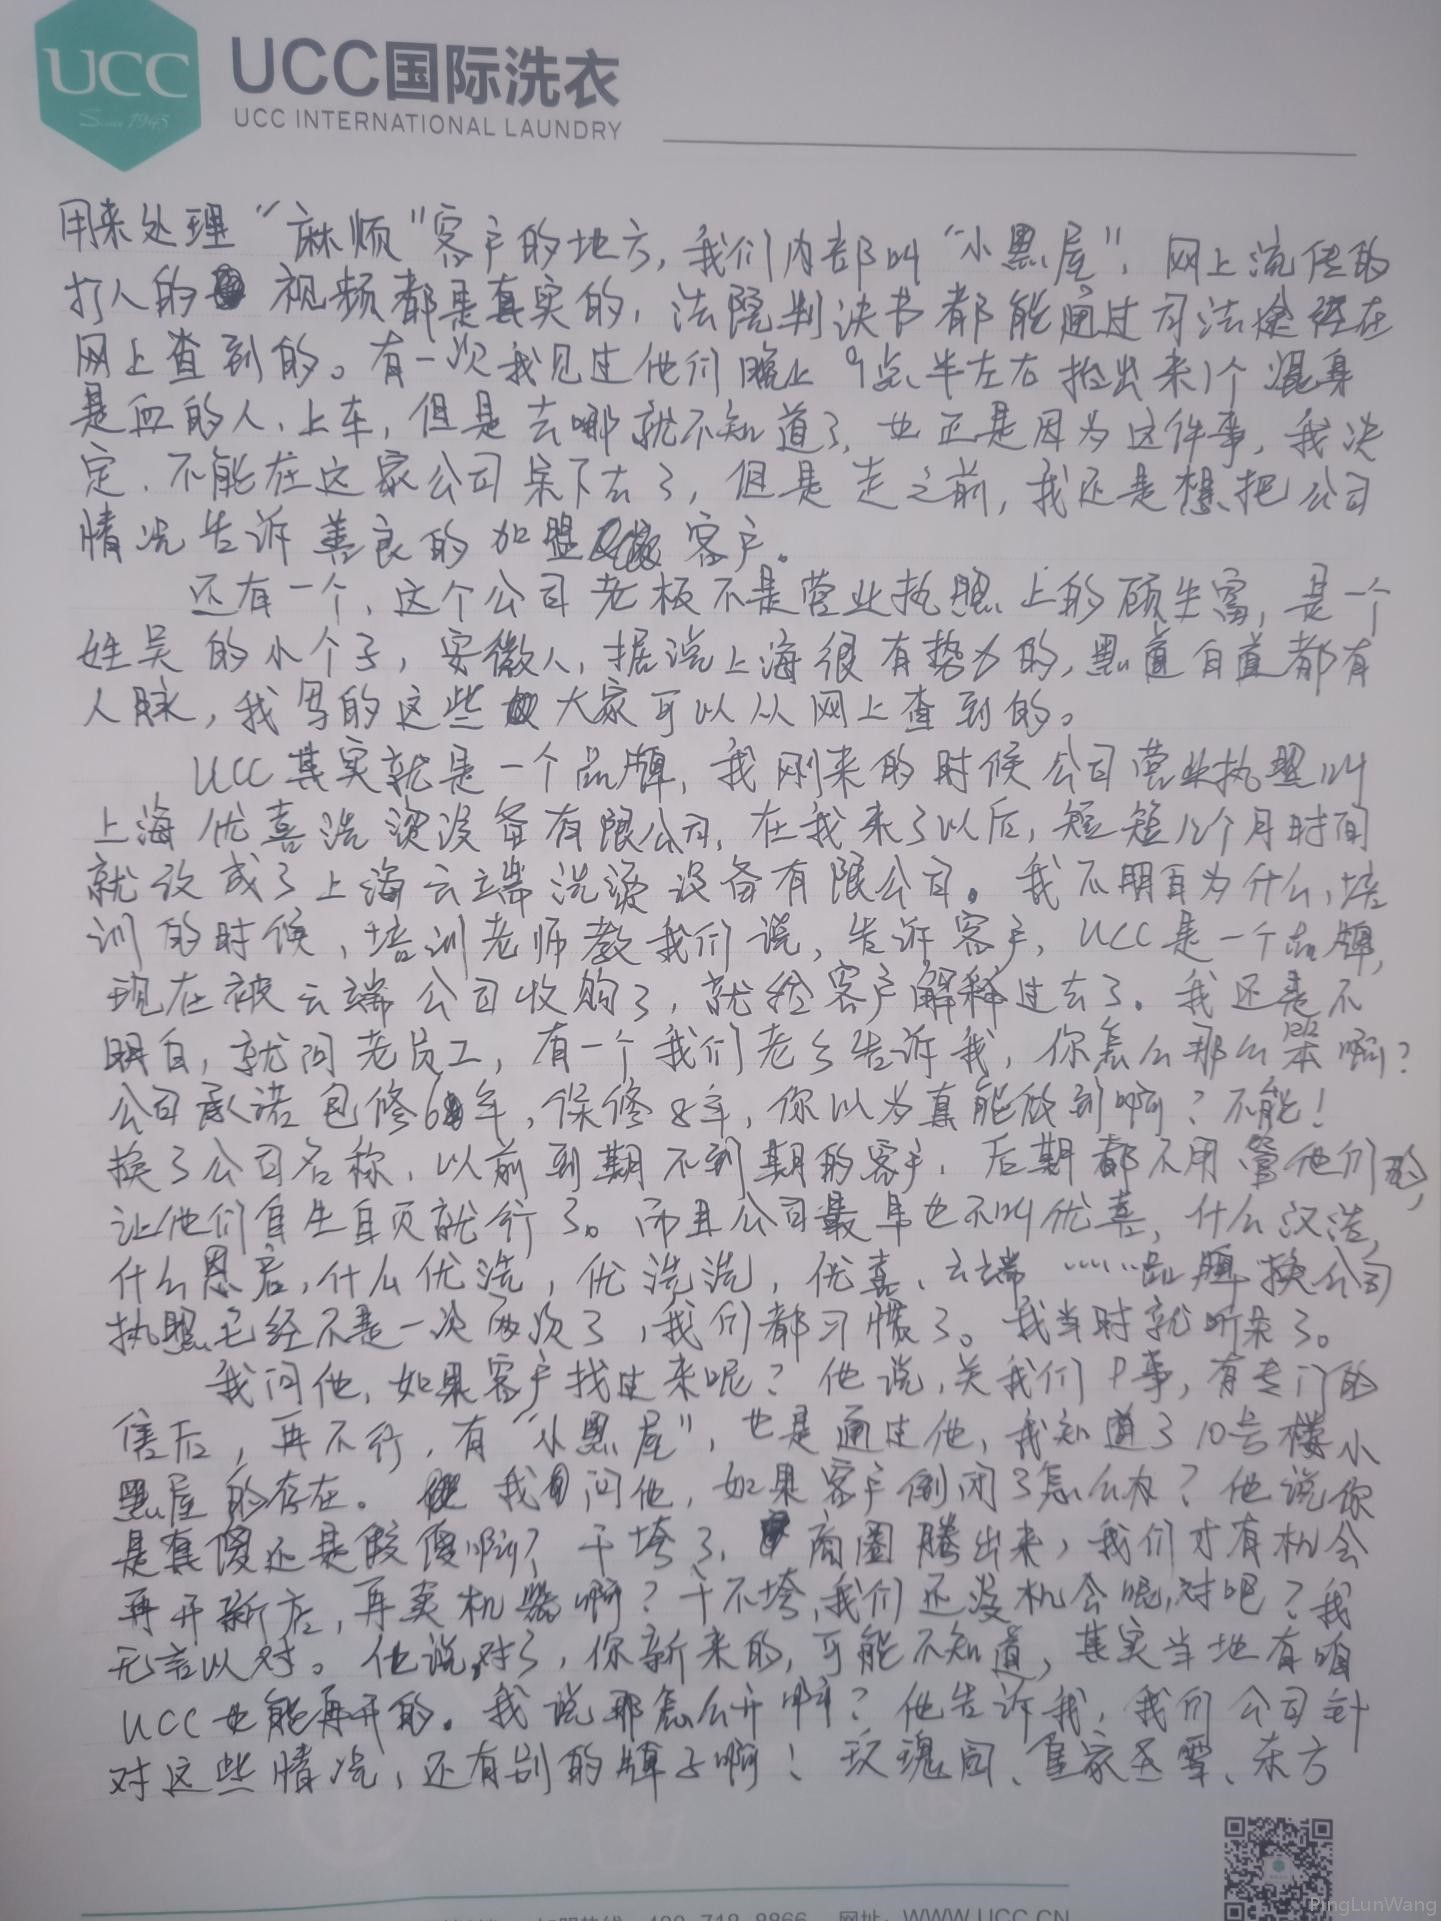 UCC
Since 1945
UCC国际洗衣
UCC INTERNATIONAL LAUNDRY
用来处理“麻烦”客户的地方,我们内部叫“小黑屋”,网上流传的
打人的 视频都是真实的,法院判决书都能通过司法途径在
网上查到的。有一次我见过他们晚上9点半左右抬出来1个混身
是血的人,上车,但是去哪就不知道了,也正是因为这件事,我决
定,不能在这家公司呆下去了,但是走之前,我还是想把公司
情况告诉善良的加盟 客户。
还有一个,这个公司老板不是营业执照上的顾生富,是一个
姓吴的小个子,安徽人,据说上海很有势力的,黑道白道都有
人脉,我写的这些 大家可以从网上查到的。
UCC其实就是一个品牌,我刚来的时候公司营业执照叫
上海优喜洗涤设备有限公司,在我来了以后,短短几个月时间
就改成了上海云端洗涤设备有限公司。我不明白为什么,培
训的时候,培训老师教我们说,告诉客户,UCC是一个品牌,
现在被云端公司收购了,就给客户解释过去了。我还是不
明白,就问老员工,有一个我们老乡告诉我,你怎么那么本啊?
公司承诺包修6年,保修8年,你以为真能做到啊?不能!
换了公司名称,以前到期不到期的客户,后期都不用管他们的,
让他们自生自灭就行了。而且公司最早也不叫优喜,什么汉洁,
什么恩启,什么优洗,优洗洗,优喜、云端……品牌换公司
执照已经不是一次两次了,我们都习惯了。我当时就听呆了。
我问他,如果客户找过来呢?他说,关我们P事,有专门的
售后,再不行,有“小黑屋”,也是通过他,我知道了10号楼小
黑屋的存在。 我 问他,如果客户倒闭了怎么办?他说你
是真傻还是假傻啊?干垮了, 商圈腾出来,我们才有机会
再开新店,再卖机器啊?干不垮,我们还没机会呢,对吧?我
无言以对。他说,对了,你新来的,可能不知道,其实当地有咱
UCC也能再开的。我说那怎么开啊?他告诉我,我们公司针
对这些情况,还有别的牌子啊!玫瑰园、皇家圣雪、东方
400-718-8866 网址:WWW.UCC.CN
PingLunWang